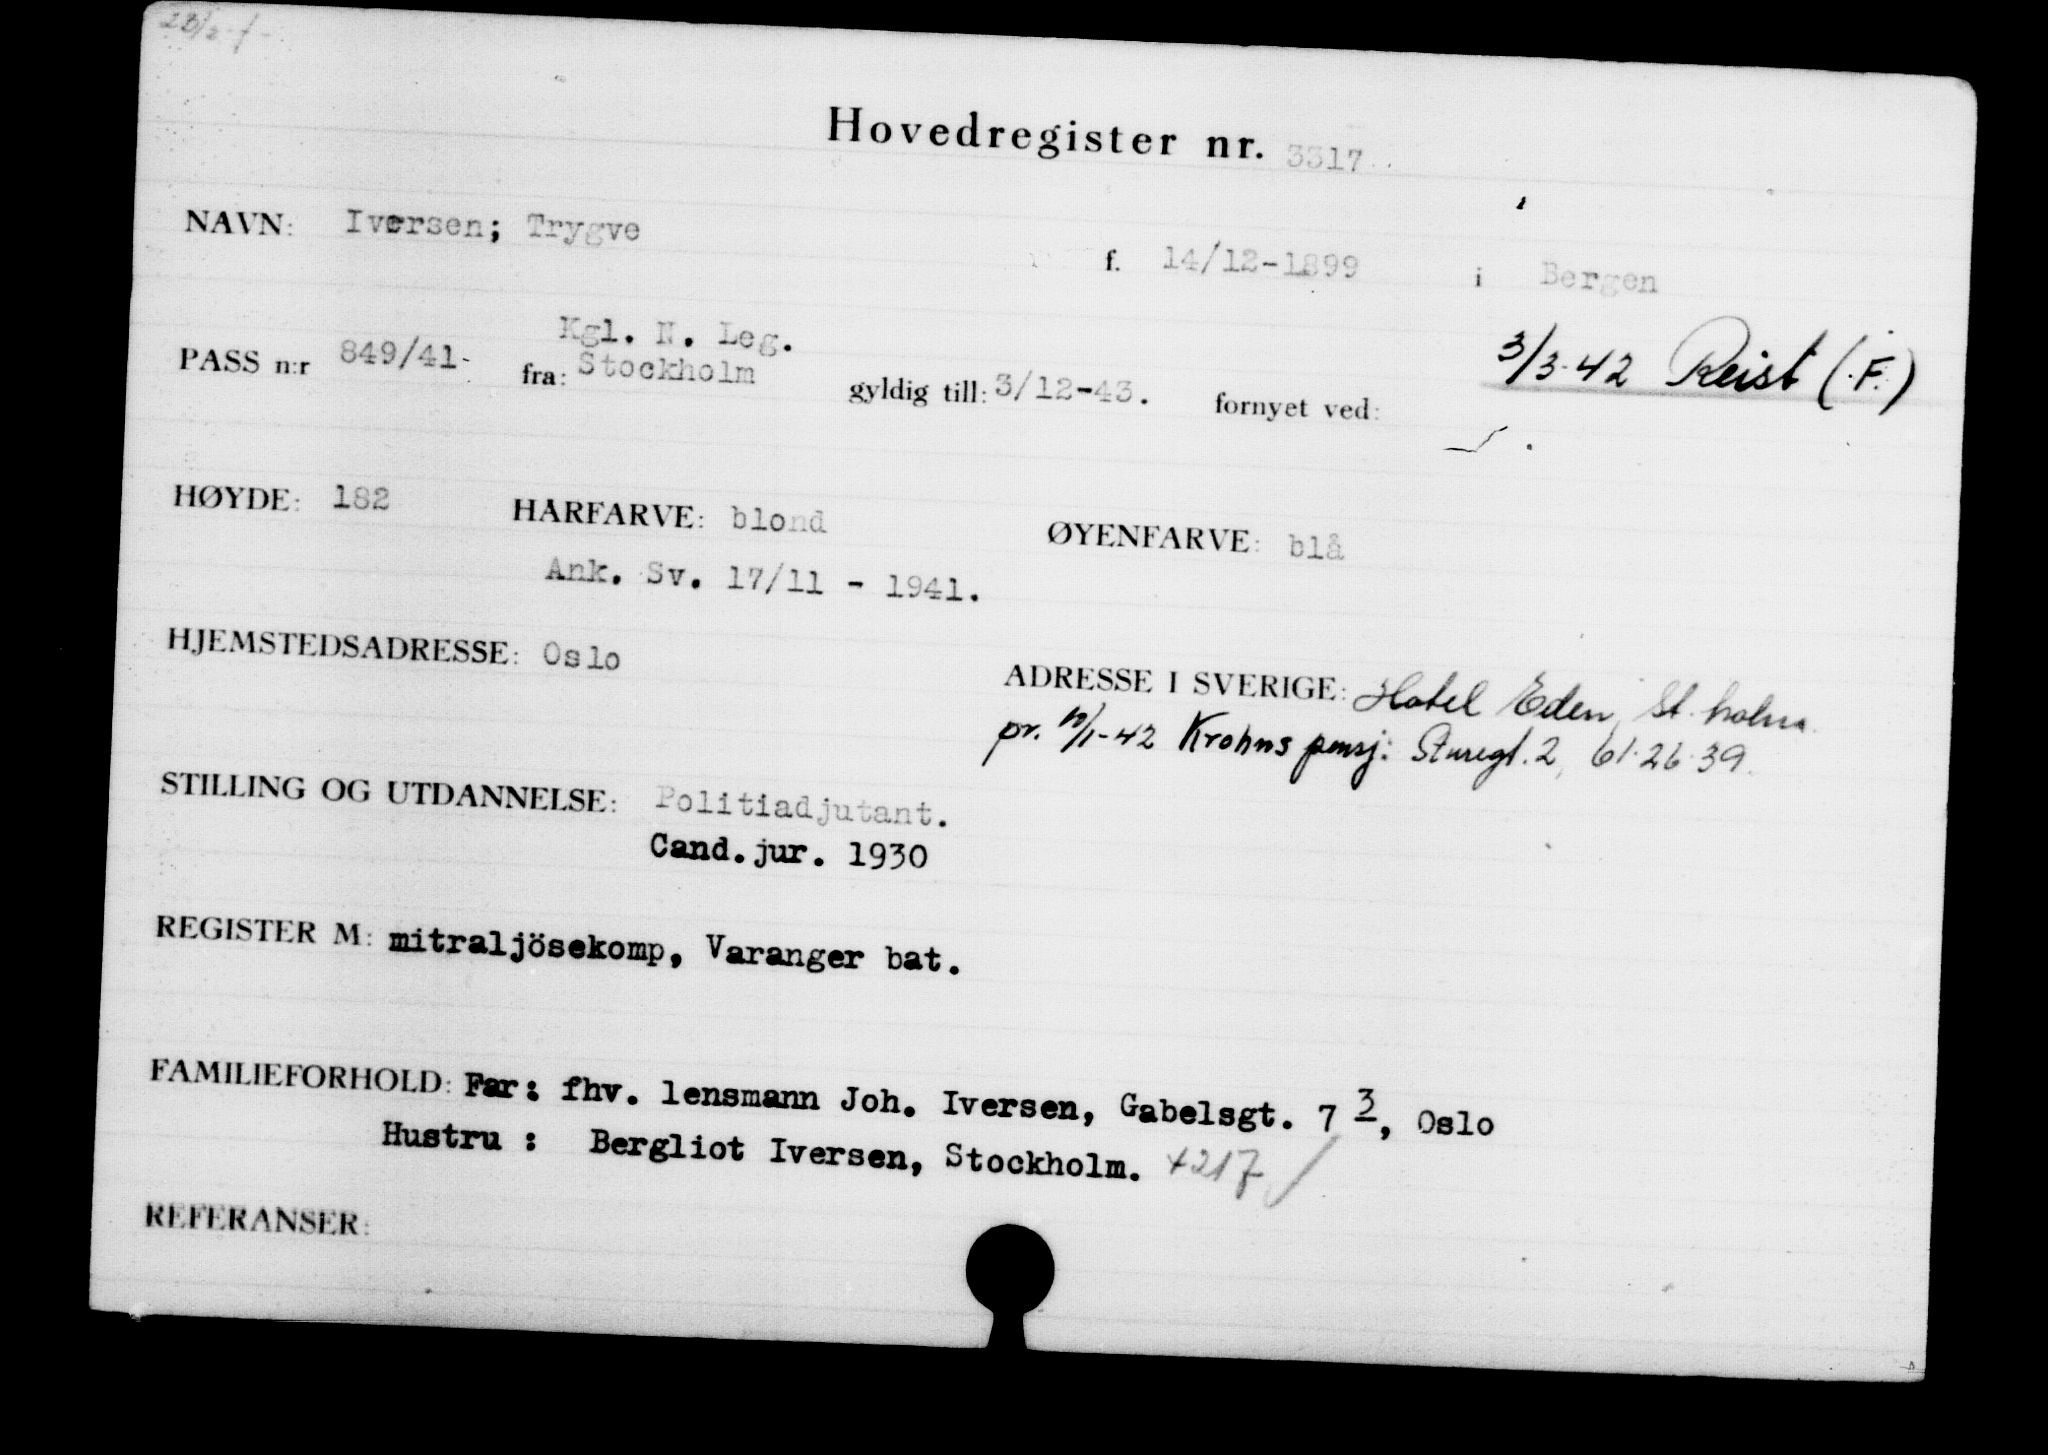 Hovedregister nr. 3317
NAVN: Iversen; Trygve f. 14/12-1899 i Bergen
3/3-42 Reist (.F.)
Kgl. N. Leg.
PASS n:r 849/41- fra: Stockholm gyldig till: 3/12-43. fornyet ved:
HØYDE: 182 HARFARVE: blond ØYENFARVE: blå
Ank. Sv. 17/11 - 1941.
HJEMSTEDSADRESSE: Oslo ADRESSE I SVERIGE: Hotel Eden, St.holm.
pr. 10/1-42 Krohns pensj: Sturegt. 2, 61.26.39.
STILLING OG UTDANNELSE: Politiadjutant.
Cand.jur. 1930
REGISTER M: mitraljösekomp, Varanger bat.
FAMILIEFORHOLD: Far: fhv. lensmann Joh. Iversen, Gabelsgt. 7 3, Oslo
Hustru : Bergliot Iversen, Stockholm. +217/
REFERANSER: